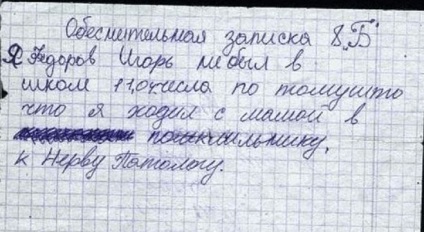 Обеснительная записка 8„Б“
Я Федоров Игорь не был в
школе 11.04 числа по томушто
что я ходил с мамой в
к Нерву Патологу.